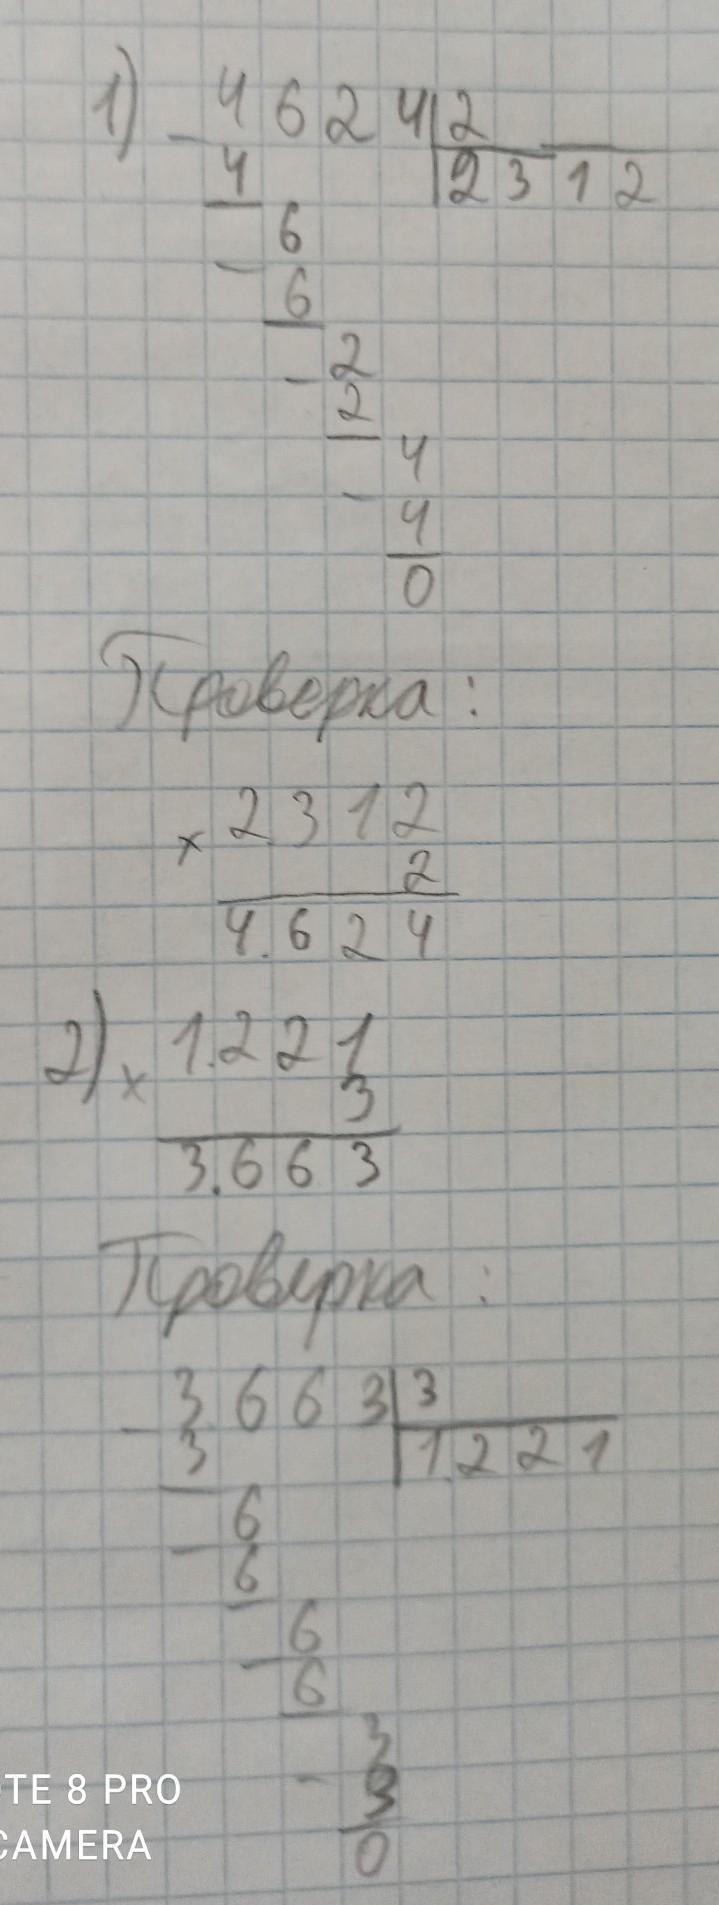 1) - 4 6 2 4 | 2
4 | 2 3 1 2
6
- 6
- 2
2
4
- 4
0
Проверка:
× 2 3 1 2
2
4.6 2 4
2) × 1.2 2 1
3
3.6 6 3
Проверка:
- 3.6 6 3 | 3
3 | 1.2 2 1
- 6
6
- 6
6
- 3
3
0
TE 8 PRO
CAMERA